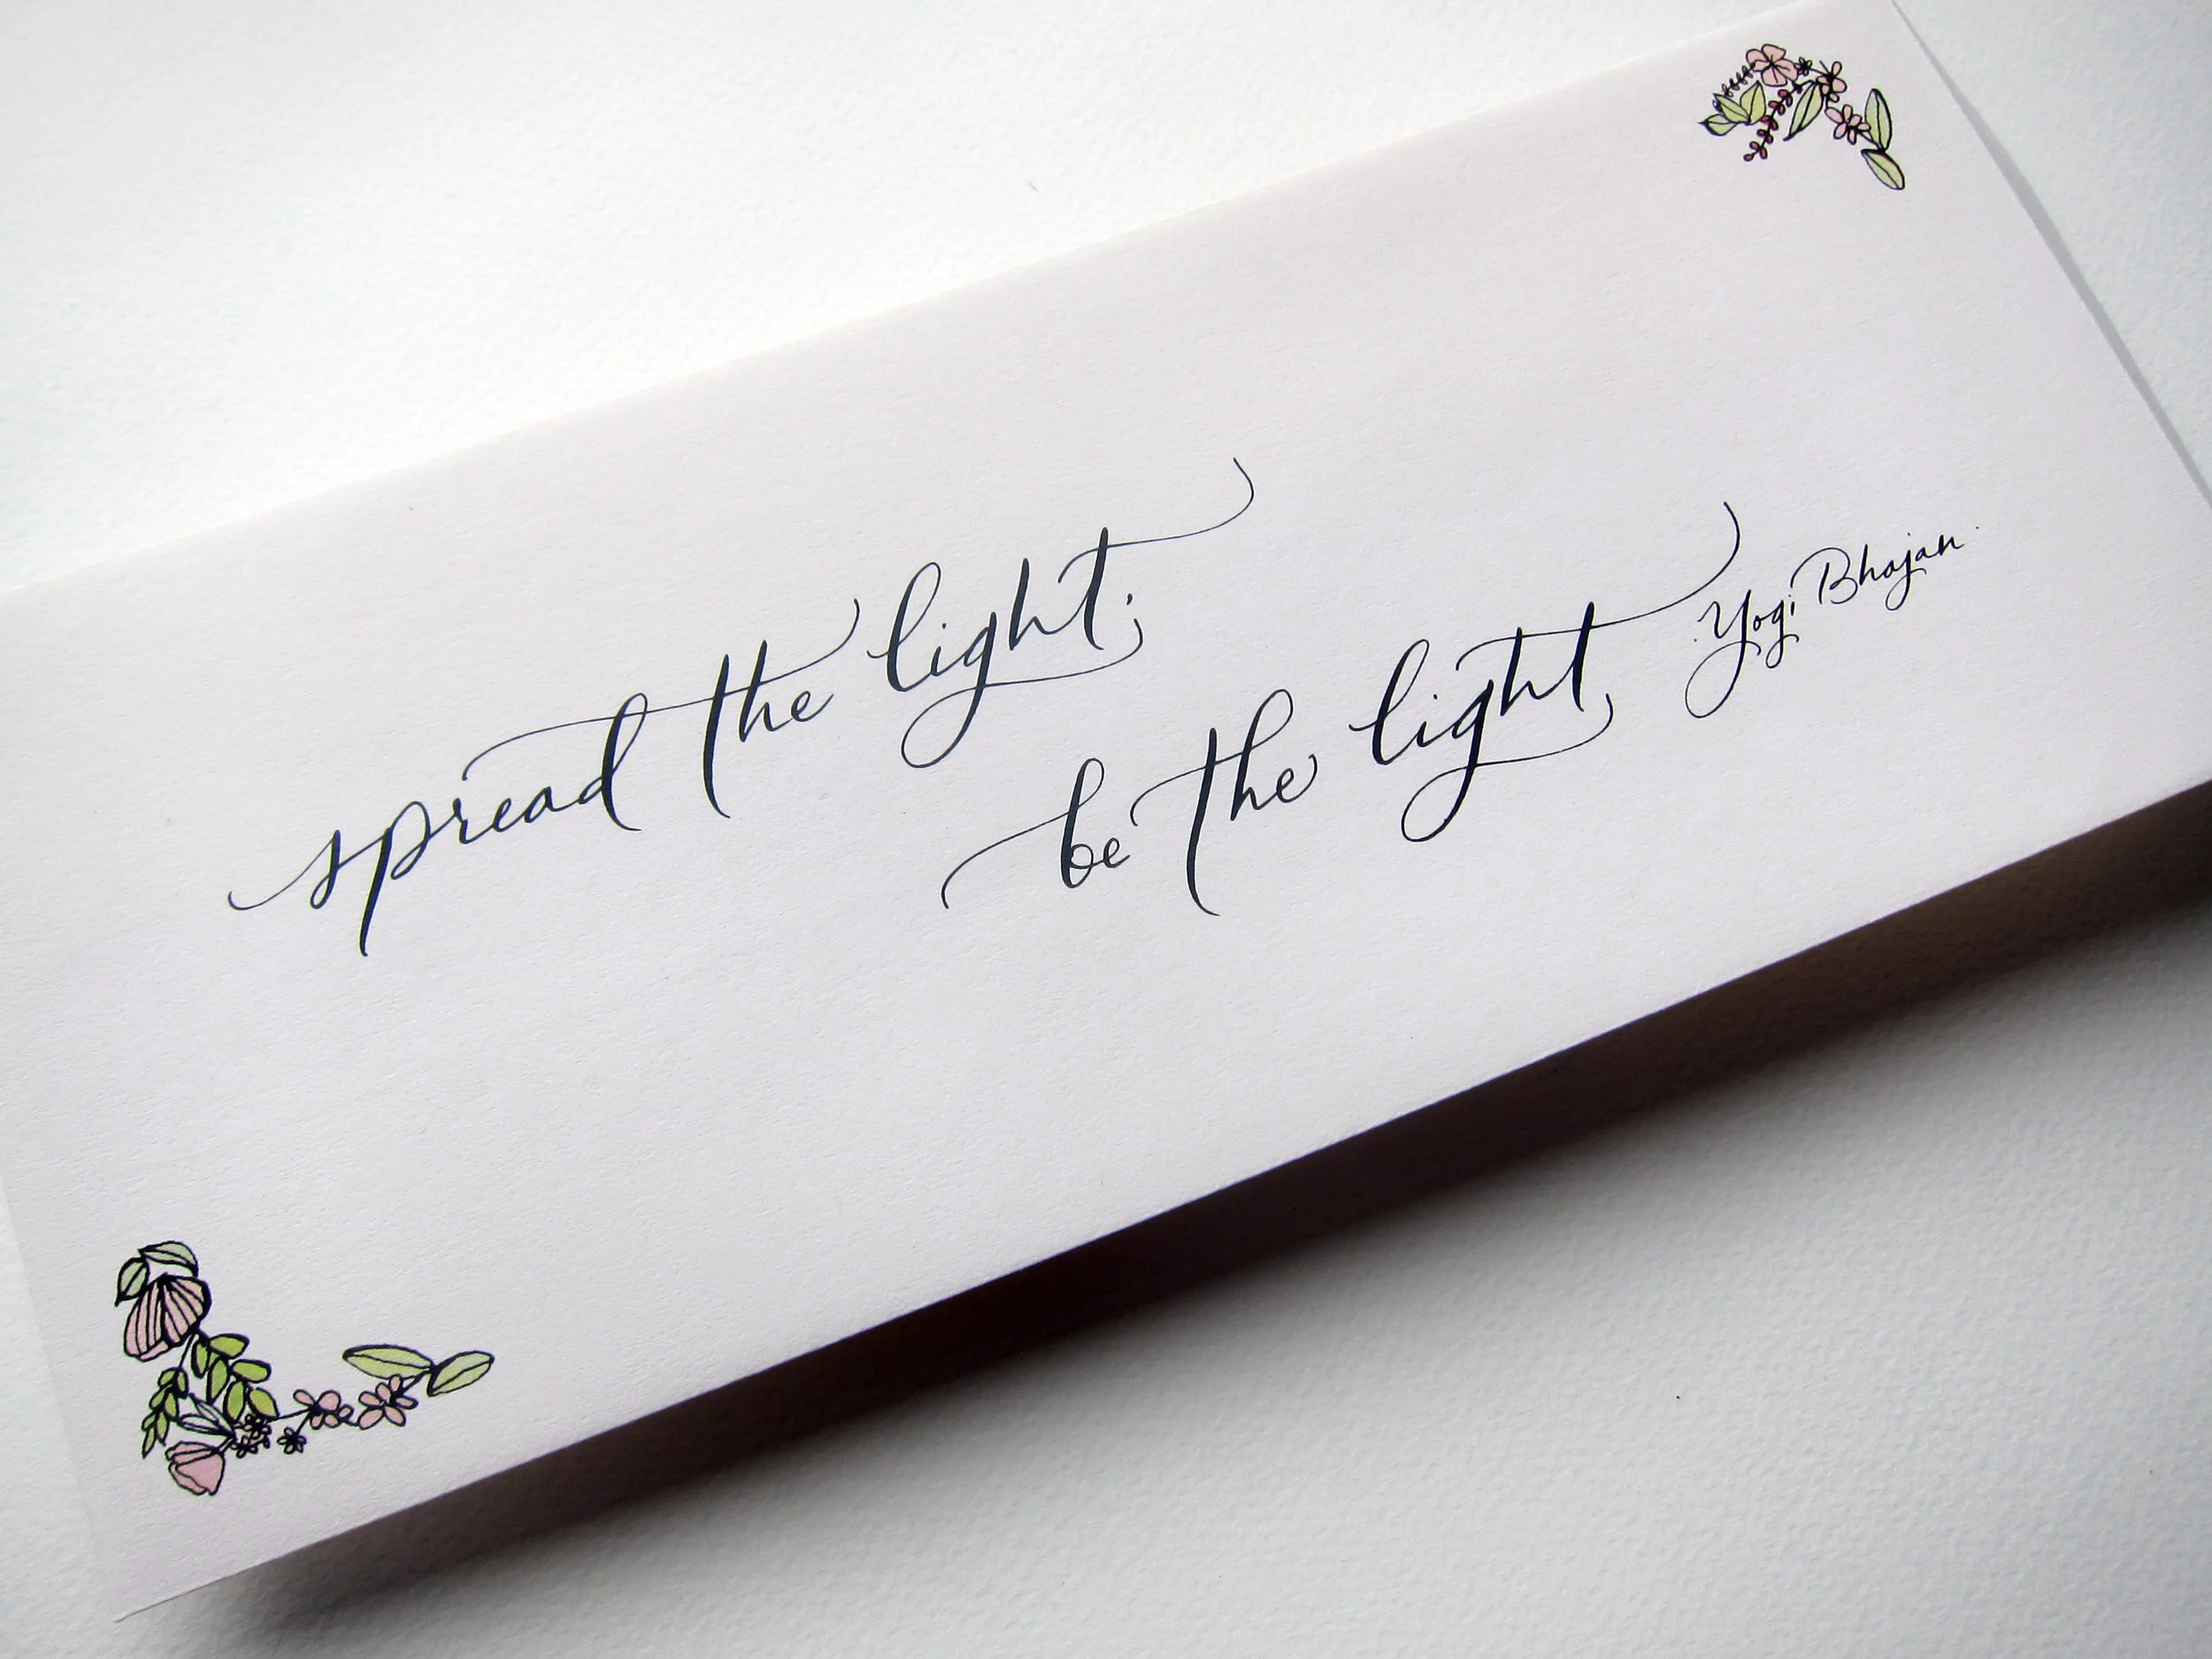 spread the light;
be the light
Yogi Bhajan